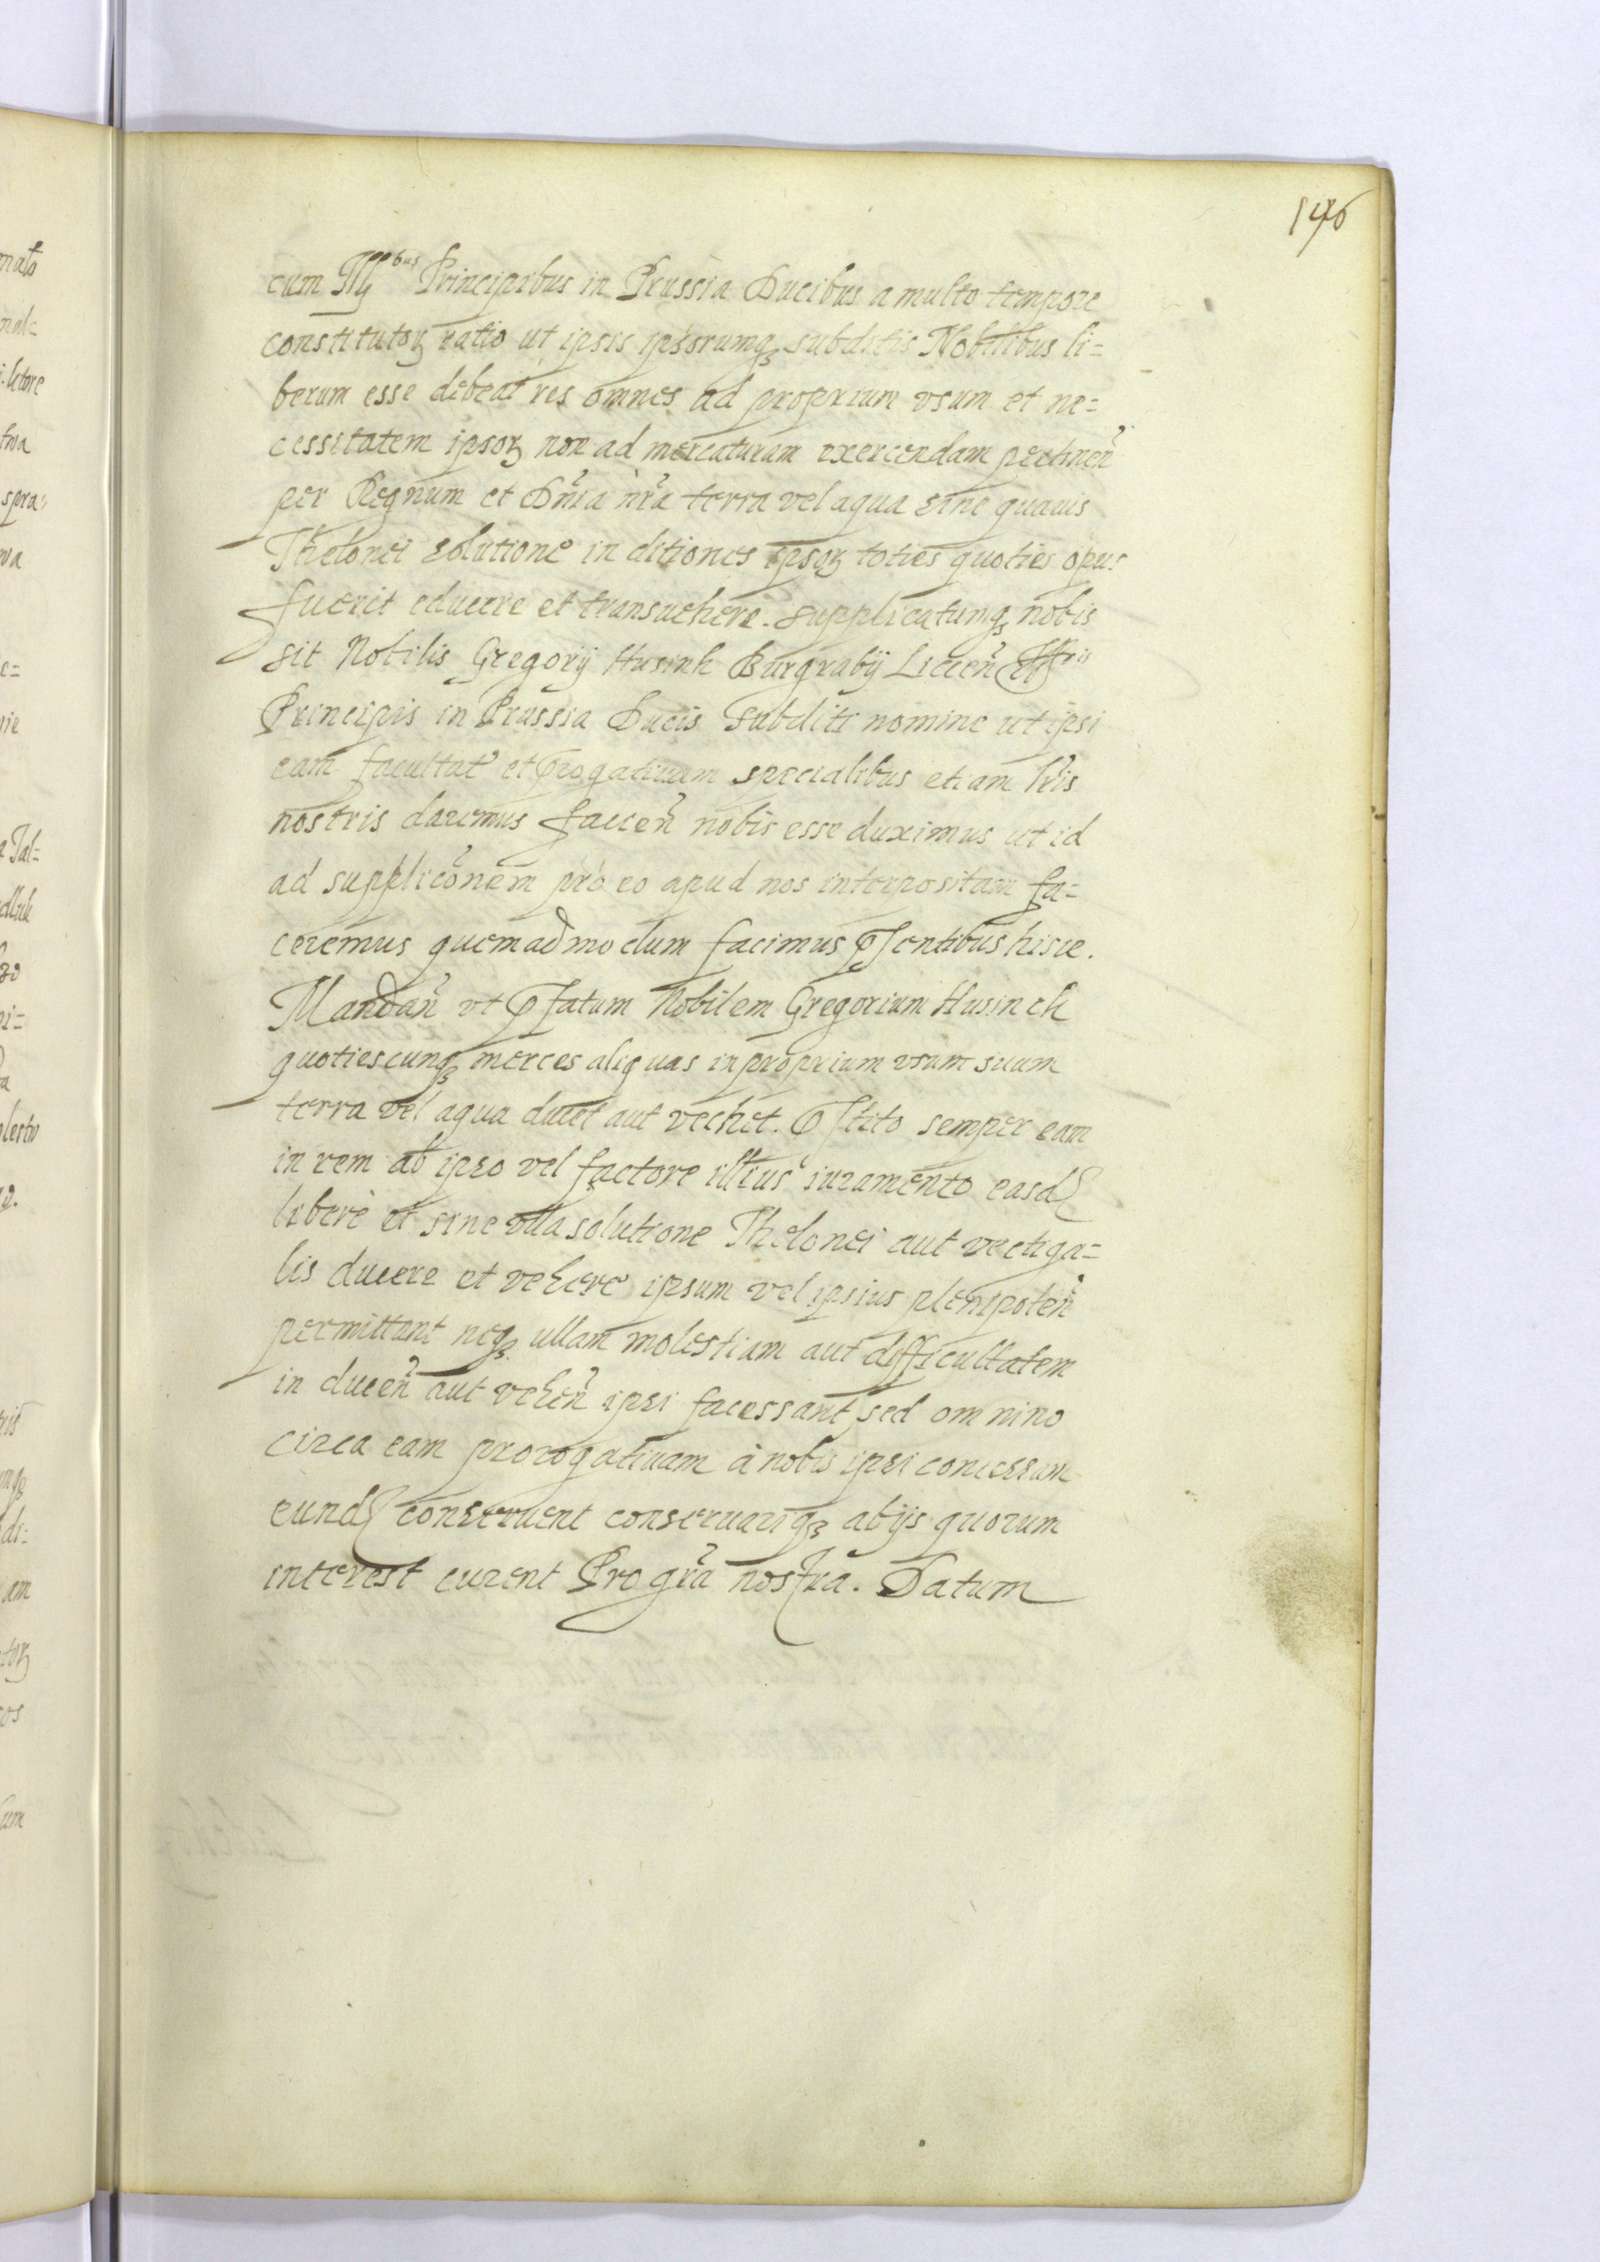 146
cum Ill^bus Principibus in Prussia Ducibus a multo tempore
constitutoꝝ ratio ut ipsis ipsorumqꝫ subditis Nobilibus li=
berum esse debeat res omnes ad proprium vsum et ne=
cessitatem ipsoꝝ non ad mercaturam exercendam pertineñ
per Regnum et Dñia ñra terra vel aqua sine quauis
Thelonei solutione in ditiones ipsoꝝ toties quoties opus
fuerit educere et transuehere. supplicatumqꝫ nobis
sit Nobilis Gregorij Husinh Burgrabij Licceñ Ill^ris
Principis in Prussia Ducis subditi nomine ut ipsi
eam facultat̃ et ꝑrogatiuam specialibus etiam l̃ris
nostris daremus facieñ nobis esse duximus ut id
ad supplicõnem pro eo apud nos interpositam fa=
ceremus quemadmodum facimus p̃sentibus hisce.
Mandañ vt p̃fatum Nobilem Gregorium Husinch
quotiescunqꝫ merces aliquas in proprium vsum suum
terra vel aqua ducet aut vechet. p̃stito semper eam
in rem ab ipso vel factore illius iuramento easd̃
liberè et sine vlla solutione Thelonei aut vectiga=
lis ducere et vehere ipsum vel ipsius plenipoteñ
permittant neqꝫ ullam molestiam aut difficultatem
in duceñ aut veheñ ipsi facessant sed omnino
circa eam prorogatiuam à nobis ipsi concessam
eund̃ conseruent conseruariqꝫ ab ijs quorum
interest curent Pro gr̃a nostra. Datum